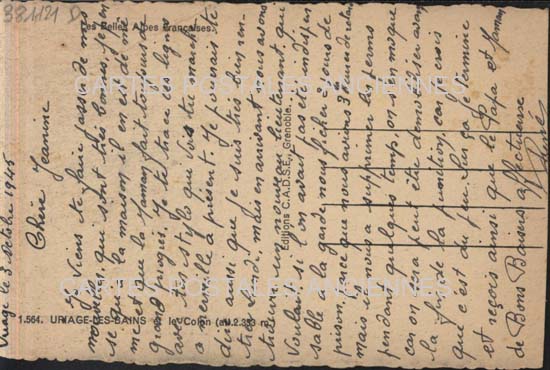 381121 D
Les Belles Alpes Françaises
CARTES POSTALES ANCIENNES
1.564. URIAGE-LES-BAINS et le Colon (alt. 2.393 m.)
Editions C.A.D.S.E., Grenoble.
Uriage le 3 Octobre 1945
Chère Jeanine
Je viens te faire part de mes
nouvelles, qui sont très bonnes, j'en
que à la maison il en est de même
et que la Maman fait toujours de
grand progrès. Je te trace ces lignes
avec ton stylo que
à merveille à présent. Je pensais te
dire aussi que je suis très bien ren-
tré lundi, mais en arrivant nous avons
trouvé un nouveau lieutenant qui
voulait si l'on avait pas été indispen
sable à la garde nous ficher 8 jours de
prison, parce que nous avions 3 heures de retard
mais il nous a supprimer les perms
pendant quelques temps, on s'en moque
car on sera peut être démobiliser avant
la fin de la punition, car je crois
que c'est du peu. Sur ça je termine
et reçois ainsi que le Papa et Maman
de Bons Baisers affectueuse